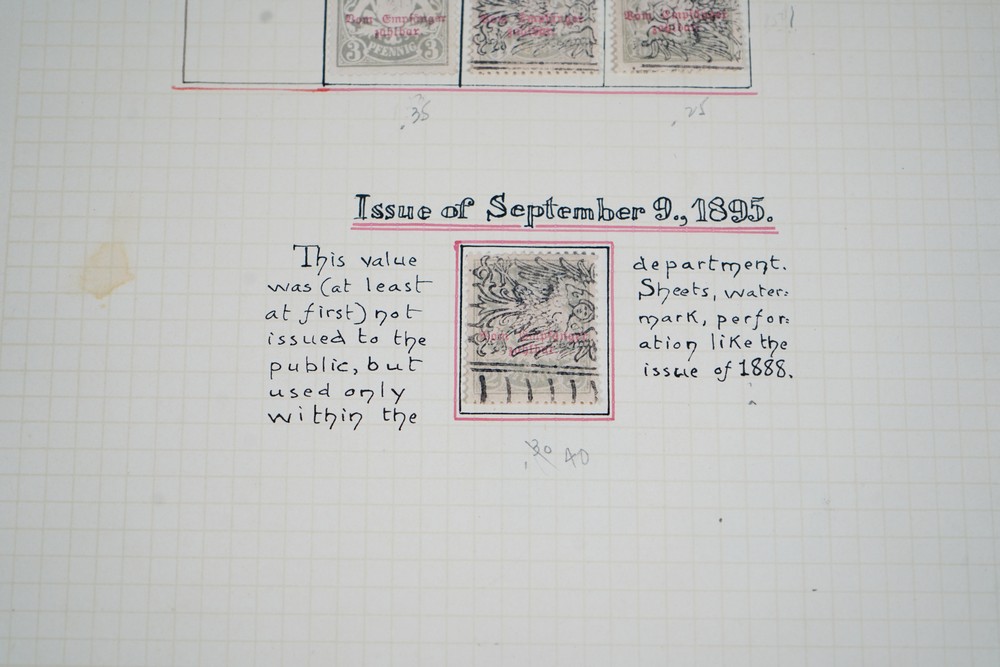 Vom Empfänger
zahlbar.
3 PFENNIG 3
Vom Empfänger
zahlbar.
Vom Empfänger
zahlbar.
.35
.25
Issue of September 9., 1895.
This value
was (at least
at first) not
issued to the
public, but
used only
within the
department.
Sheets, water:
mark, perfor:
ation like the
issue of 1888.
Vom Empfänger
zahlbar.
40